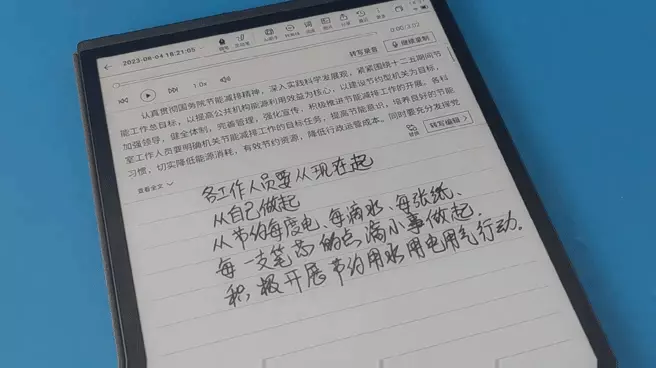 2023-08-04 16:21:05
0:00/3:03
转写录音
继续录制
1.0x
认真贯彻国务院节能减排精神，深入实践科学发展观，紧紧围绕十二五期间节
能工作总目标，以提高公共机构能源利用效益为核心，以建设节约型机关为目标，
加强领导，健全体制，完善管理，强化宣传，积极推进节能减排工作的开展。各科
室工作人员要明确机关节能减排工作的目标任务，提高节能意识，培养良好的节能
习惯，切实降低能源消耗，有效节约资源，降低行政运营成本。同时要充分发挥党
查看全文
转写编辑
各工作人员要从现在起
从自己做起
从节约每度电、每滴水、每张纸、
每一支笔等的点滴小事做起，
积极开展节约用水用电用气行动。